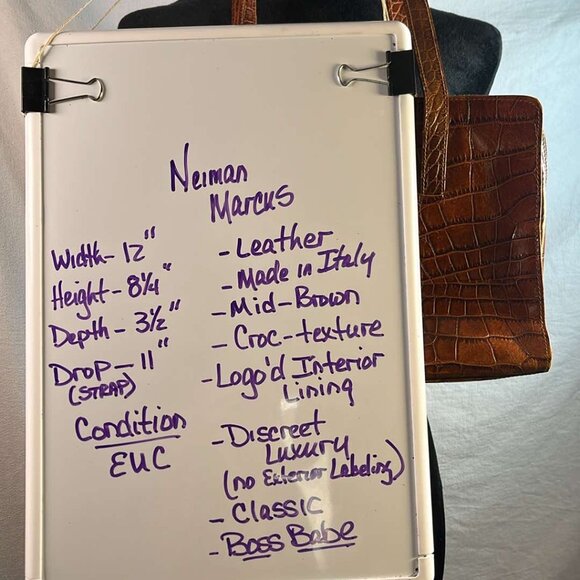 Neiman
Marcus
Width - 12"
Height - 8 1/4"
Depth - 3 1/2"
Drop - 11"
(STRAP)
Condition
EUC
- Leather
- Made in Italy
- Mid-Brown
- Croc-texture
- Logo'd Interior
Lining
- Discreet
Luxury
(no Exterior Labeling)
- Classic
- Boss Babe